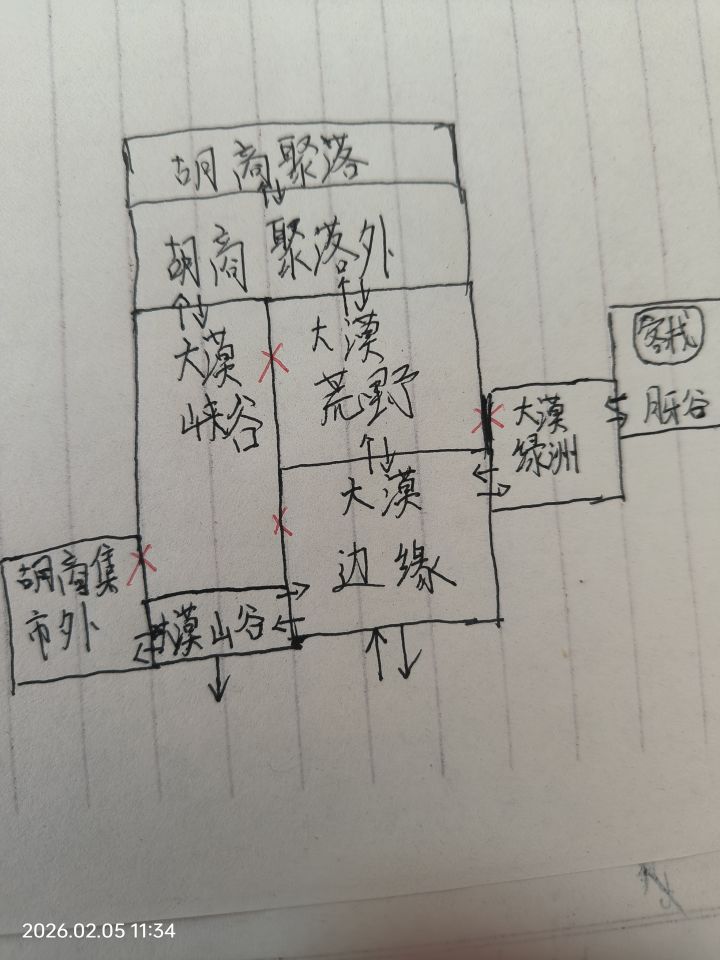 胡商聚落
胡商聚落外
大漠
峡谷
大漠
荒野
大漠
绿洲
客栈
月牙谷
大漠
边缘
胡商集
市外
大漠山谷
2026.02.05 11:34